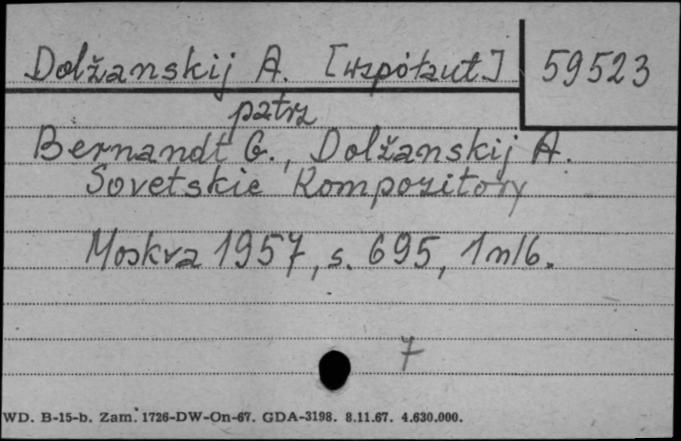 Dolžanskij A. [współaut] 59523
patrz
Bernandt G., Dolžanskij A.
Sovetskie Kompozitory
Moskva 1957, s. 695, 1 nlb.
7
WD. B-15-b. Zam. 1726-DW-On-67. GDA-3198. 8.11.67. 4.630.000.